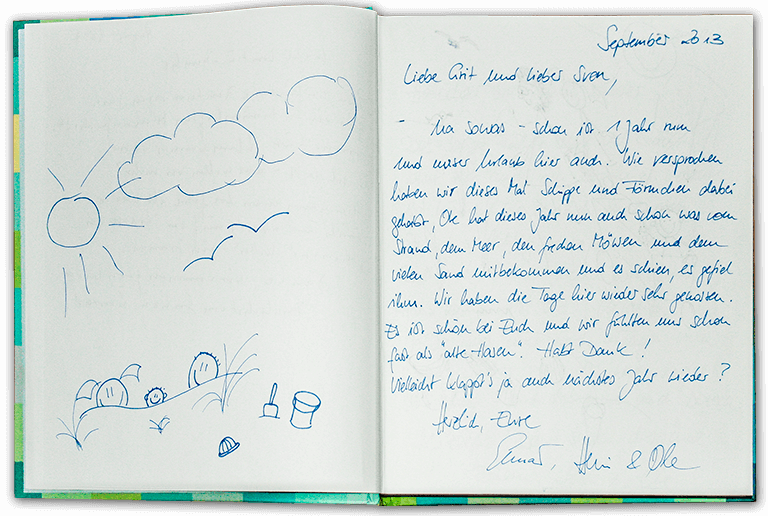 September 2013
Liebe Grit und lieber Sven,
- Na sowas - schon ist 1 Jahr rum
und unser Urlaub hier auch. Wie versprochen
haben wir dieses Mal Schippe und Förmchen dabei
gehabt, Ole hat dieses Jahr nun auch schon was vom
Strand, dem Meer, den frechen Möwen und dem
vielen Sand mitbekommen und es schien, es gefiel
ihm. Wir haben die Tage hier wieder sehr genossen.
Es ist schön bei Euch und wir fühlten uns schon
fast als "alte Hasen". Habt Dank!
Vielleicht klappt's ja auch nächstes Jahr wieder?
Herzlich, Eure
& Ole